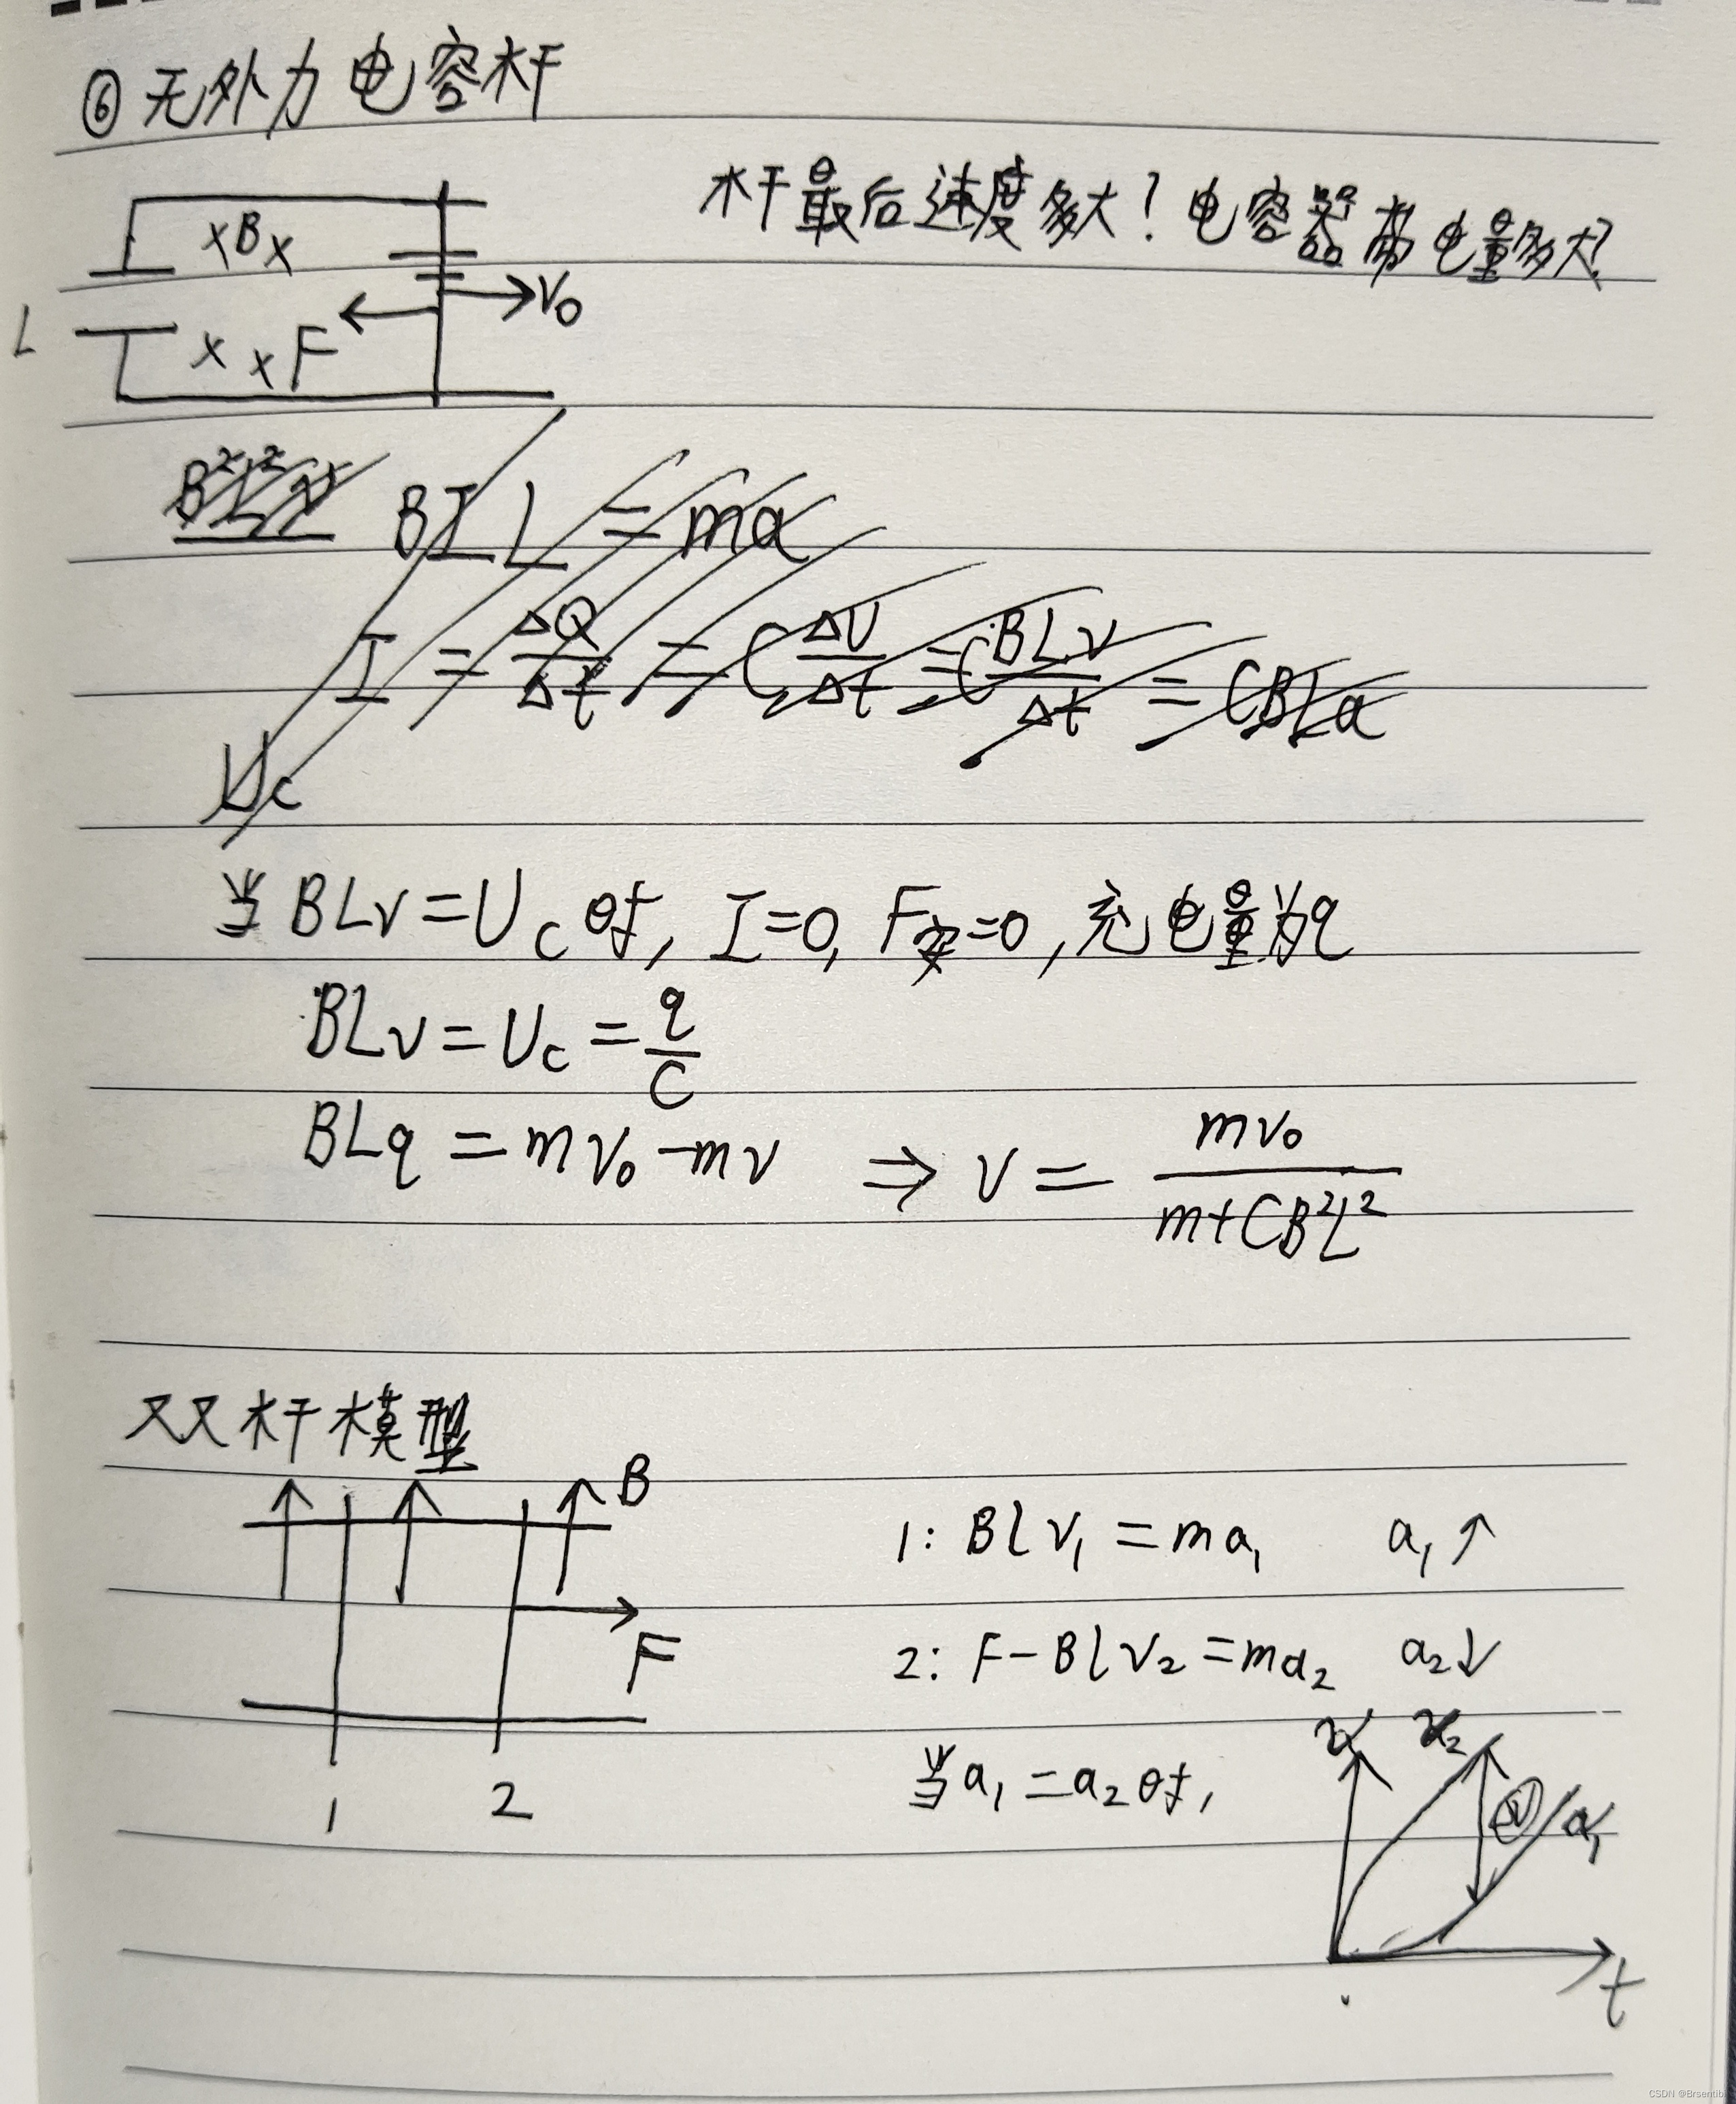 ⑥ 无外力电容杆
杆最后速度多大?电容器带电量多大?
×B×
V₀
L
××F
B²L²v
BIL=ma
I=ΔQ/Δt=CΔU/Δt=CBLv/Δt=CBLa
Uc
当BLv=Uc时, I=0, F安=0, 充电量为q
BLv=Uc=q/C
BLq=mv₀-mv ⇒ v=mv₀/(m+CB²L²)
双杆模型
B
F
1
2
1: Blv₁=ma₁ a₁↑
2: F-Blv₂=ma₂ a₂↓
当a₁=a₂时,
t
CSDN @Brsentibi